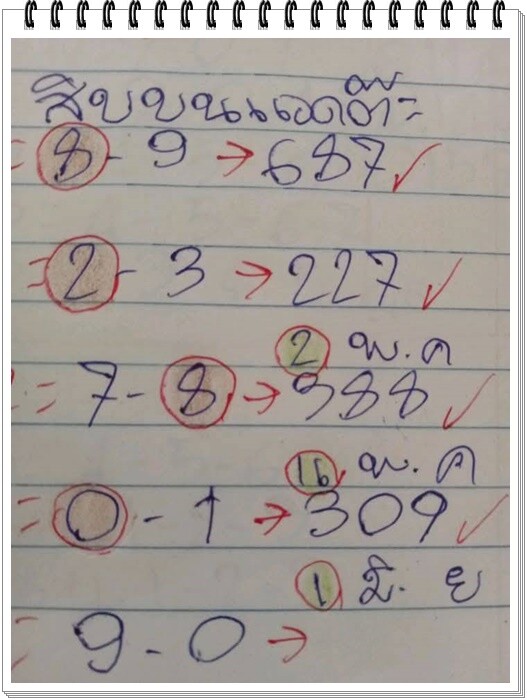 สิบบนแอดต๊ะ
= 8 - 9 → 687 ✓
= 2 - 3 → 227 ✓
2 พ.ค
= 7 - 8 → 988 ✓
16 พ.ค
= 0 - 1 → 309 ✓
1 มิ.ย
= 9 - 0 →